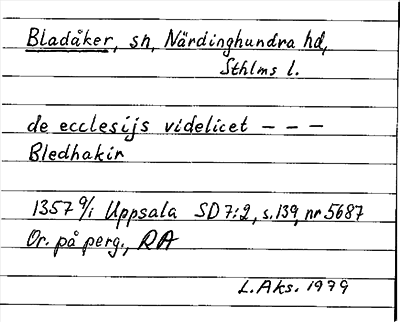 Bladåker, sn, Närdinghundra hd,
Sthlms l.
de ecclesijs videlicet - - -
Bledhakir
1357 9/1 Uppsala SD 7:2, s.139, nr 5687
Or. på perg., RA
L. Aks. 1979